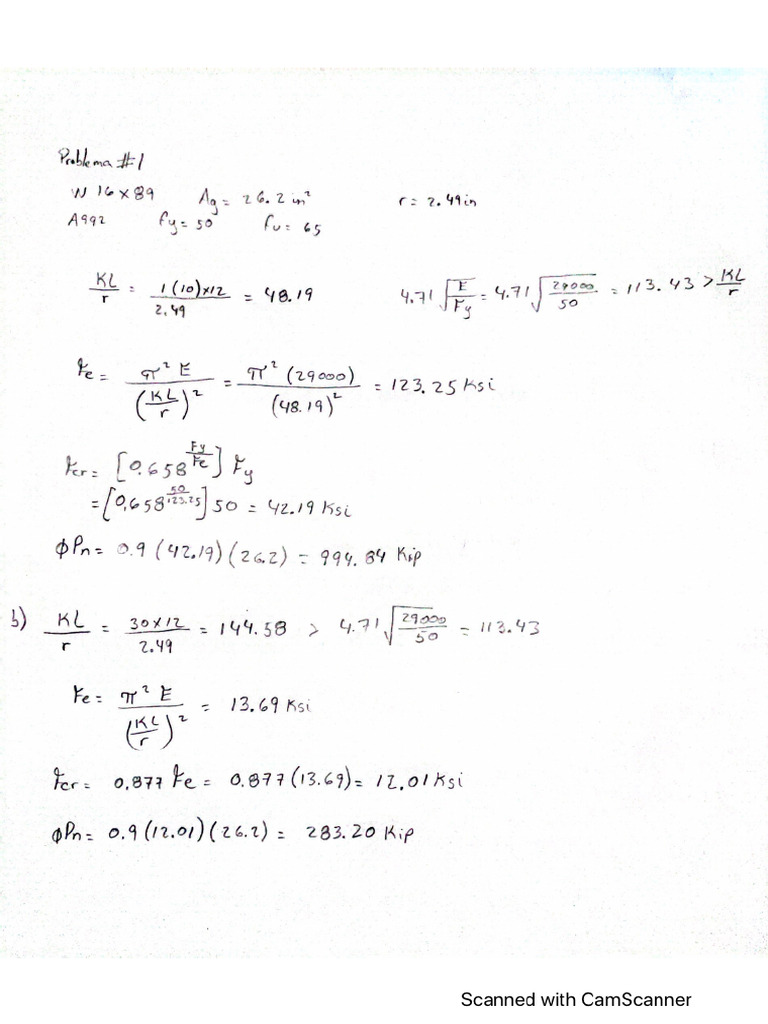 Problema #1
W 16 x 89 Ag = 26.2 in² r = 2.49 in
A992 Fy = 50 Fu = 65
KL/r = 1(10)x12/2.49 = 48.19 4.71√(E/Fy) = 4.71√(29000/50) = 113.43 > KL/r
Fe = π² E/(KL/r)² = π² (29000)/(48.19)² = 123.25 Ksi
Fcr = [0.658^(Fy/Fe)] Fy
= [0.658^(50/123.25)] 50 = 42.19 Ksi
ϕPn = 0.9 (42.19)(26.2) = 994.84 Kip
b) KL/r = 30x12/2.49 = 144.58 > 4.71√(29000/50) = 113.43
Fe = π² E/(KL/r)² = 13.69 Ksi
Fcr = 0.877 Fe = 0.877(13.69) = 12.01 Ksi
ϕPn = 0.9(12.01)(26.2) = 283.20 Kip
Scanned with CamScanner